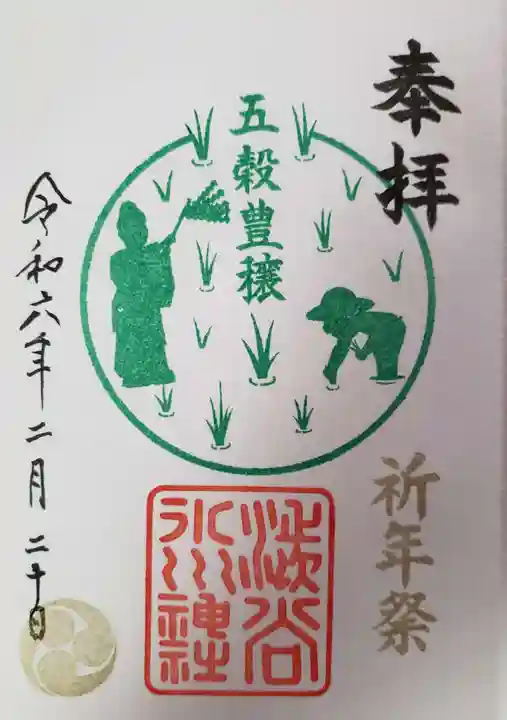 奉拝
祈年祭
五穀豊穣
渋谷
氷川神社
令和六年二月二十日